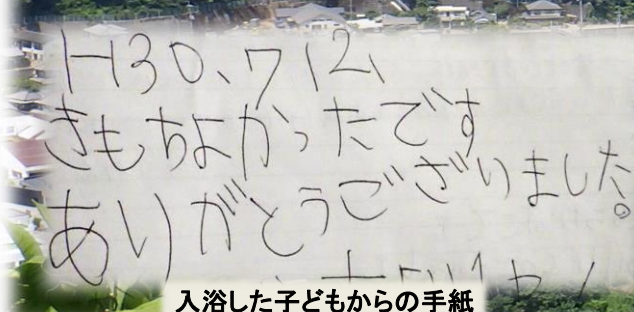 H30、7、12、
きもちよかったです
ありがとうございました。
入浴した子どもからの手紙